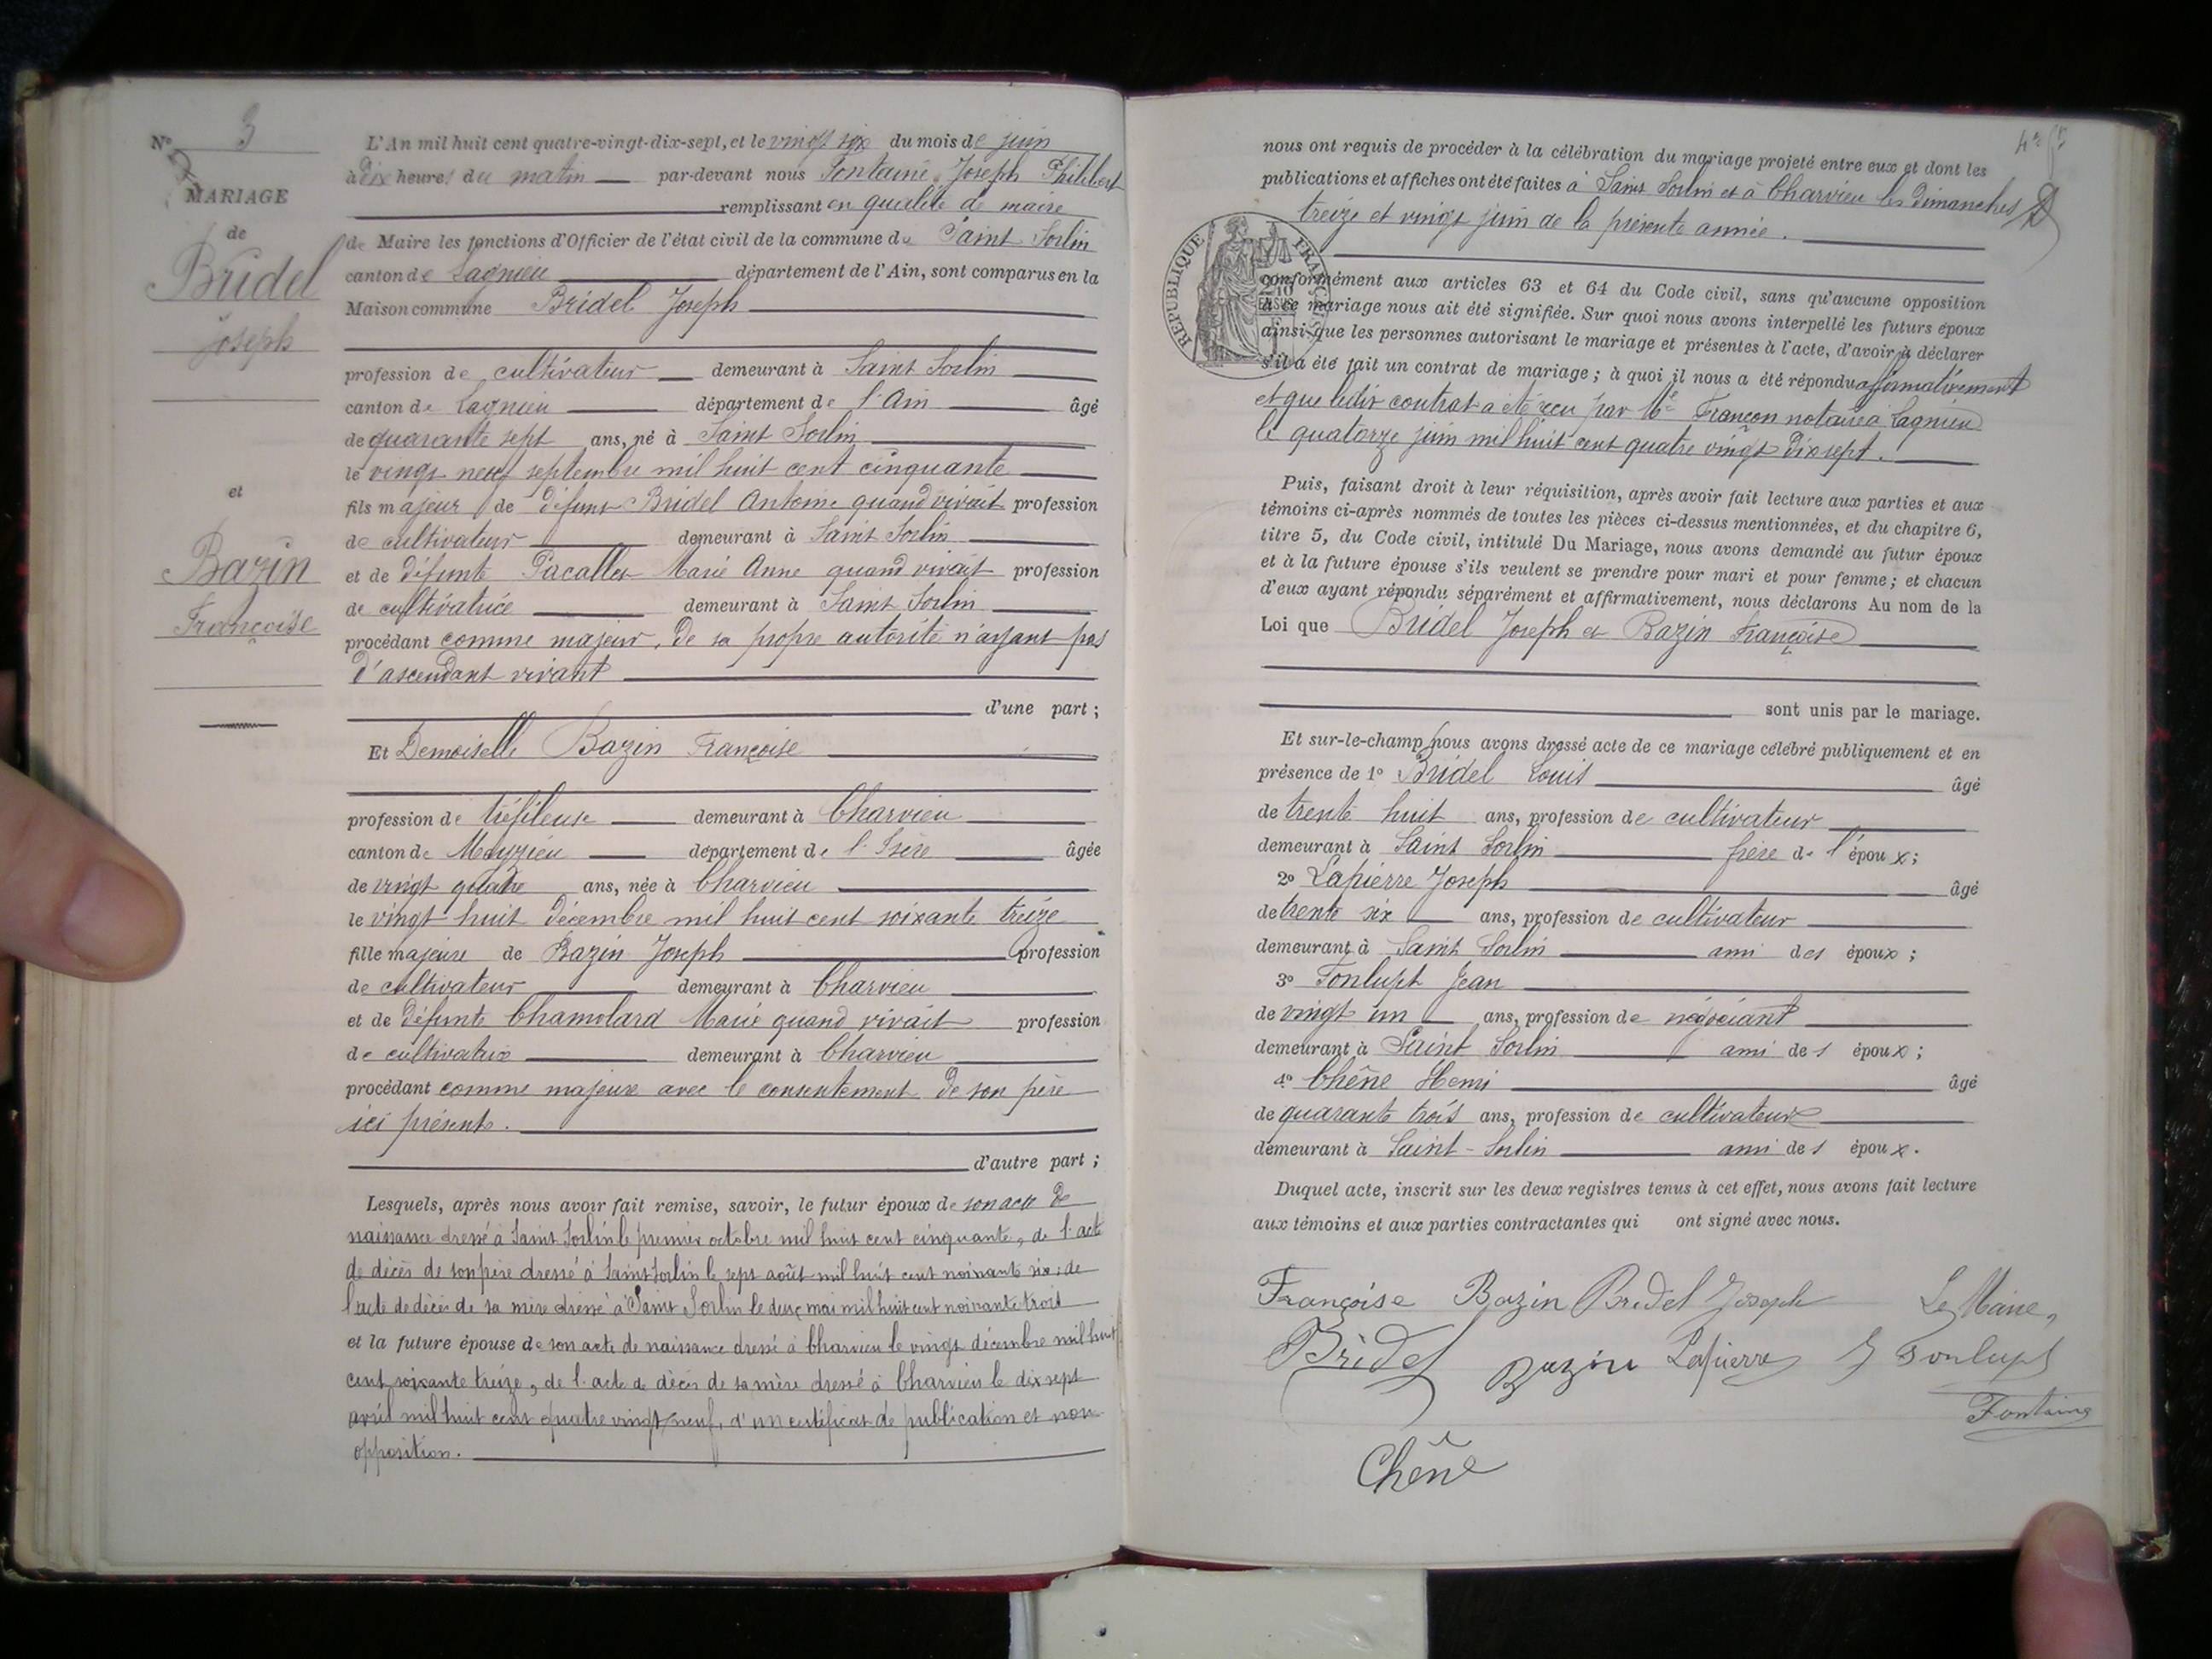 N° 3
MARIAGE
de
Bridel
Joseph
et
Bazin
Françoise
L'An mil huit cent quatre-vingt-dix-sept, et le vingt six du mois de juin
à dix heures du matin par-devant nous Fontaine Joseph Philibert
remplissant en qualité de maire
de Maire les fonctions d'Officier de l'état civil de la commune de Saint Sorlin
canton de Lagnieu département de l'Ain, sont comparus en la
Maison commune Bridel Joseph
profession de cultivateur demeurant à Saint Sorlin
canton de Lagnieu département de l'Ain âgé
de quarante sept ans, né à Saint Sorlin
le vingt neuf septembre mil huit cent cinquante
fils majeur de défunt Bridel Antoine quand vivait profession
de cultivateur demeurant à Saint Sorlin
et de défunte Pacallet Marie Anne quand vivait profession
de cultivatrice demeurant à Saint Sorlin
procédant comme majeur, de sa propre autorité n'ayant pas
d'ascendant vivant
d'une part ;
Et Demoiselle Bazin Françoise
profession de tréfileuse demeurant à Charvieu
canton de Meyzieu département de l'Isère âgée
de vingt quatre ans, née à Charvieu
le vingt huit décembre mil huit cent soixante treize
fille majeure de Bazin Joseph profession
de cultivateur demeurant à Charvieu
et de défunte Chamolard Marie quand vivait profession
de cultivatrice demeurant à Charvieu
procédant comme majeure avec le consentement de son père
ici présent.
d'autre part ;
Lesquels, après nous avoir fait remise, savoir, le futur époux de son acte de
naissance dressé à Saint Sorlin le premier octobre mil huit cent cinquante, de l'acte
de décès de son père dressé à Saint Sorlin le sept août mil huit cent noixante six ; de
l'acte de décès de sa mère dressé à Saint Sorlin le deux mai mil huit cent noixante trois
et la future épouse de son acte de naissance dressé à Charvieu le vingt décembre mil huit
cent soixante treize, de l'acte de décès de sa mère dressé à Charvieu le dix sept
avril mil huit cent quatre vingt neuf, d'un certificat de publication et non
opposition.
nous ont requis de procéder à la célébration du mariage projeté entre eux et dont les
publications et affiches ont été faites à Saint Sorlin et à Charvieu les dimanches
treize et vingt juin de la présente année.
RÉPUBLIQUE FRANÇAISE
conformément aux articles 63 et 64 du Code civil, sans qu'aucune opposition
à ce mariage nous ait été signifiée. Sur quoi nous avons interpellé les futurs époux
ainsi que les personnes autorisant le mariage et présentes à l'acte, d'avoir à déclarer
s'il a été fait un contrat de mariage ; à quoi il nous a été répondu affirmativement
et que ledit contrat a été reçu par Me Françon notaire à Lagnieu
le quatorze juin mil huit cent quatre vingt dix sept.
Puis, faisant droit à leur réquisition, après avoir fait lecture aux parties et aux
témoins ci-après nommés de toutes les pièces ci-dessus mentionnées, et du chapitre 6,
titre 5, du Code civil, intitulé Du Mariage, nous avons demandé au futur époux
et à la future épouse s'ils veulent se prendre pour mari et pour femme ; et chacun
d'eux ayant répondu séparément et affirmativement, nous déclarons Au nom de la
Loi que Bridel Joseph et Bazin Françoise
sont unis par le mariage.
Et sur-le-champ nous avons dressé acte de ce mariage célébré publiquement et en
présence de 1° Bridel Louis âgé
de trente huit ans, profession de cultivateur
demeurant à Saint Sorlin frère de l'époux ;
2° Lapierre Joseph âgé
de trente six ans, profession de cultivateur
demeurant à Saint Sorlin ami des époux ;
3° Fonlupt Jean
de vingt un ans, profession de négociant
demeurant à Saint Sorlin ami des époux ;
4° Chêne Henri âgé
de quarante trois ans, profession de cultivateur
demeurant à Saint-Sorlin ami des époux.
Duquel acte, inscrit sur les deux registres tenus à cet effet, nous avons fait lecture
aux témoins et aux parties contractantes qui ont signé avec nous.
Françoise Bazin Bridel Joseph Le Maire,
Bridel Bazin Lapierre J Fonlupt
Fontaine
Chêne